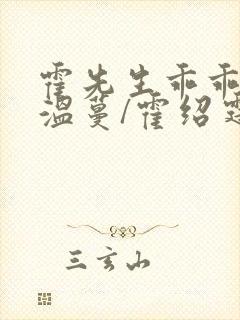 霍先生乖乖
温蔓/霍绍
三玄山